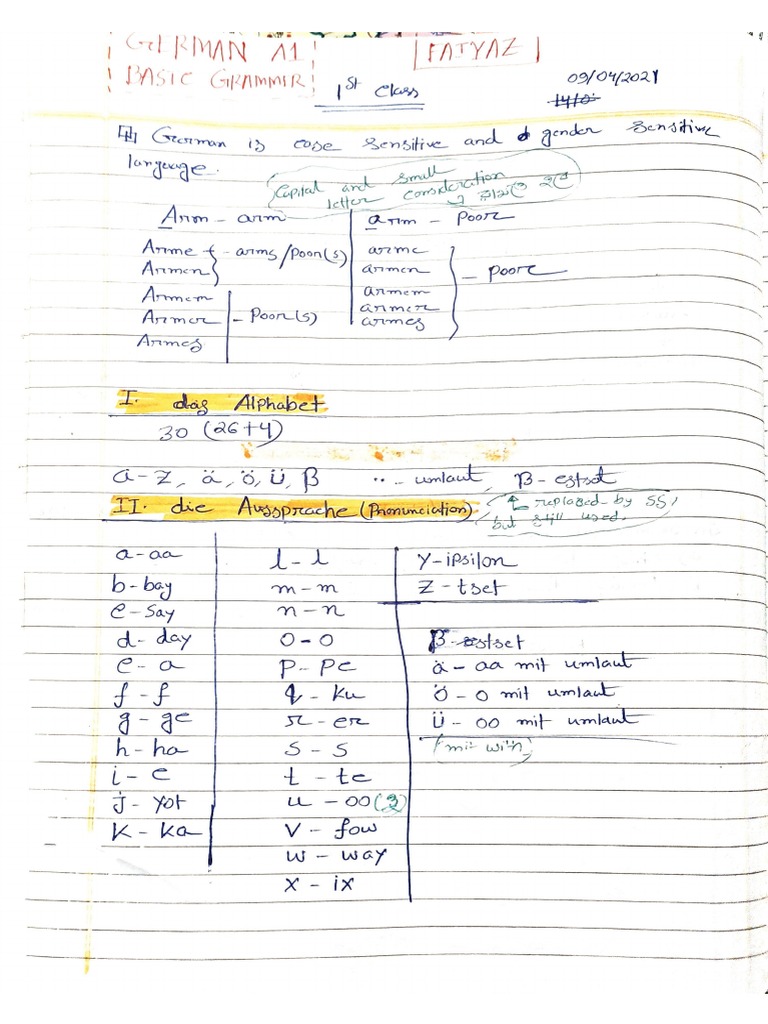 GERMAN A1
BASIC GRAMMER
FAIYAZ
1st class
09/04/2021
German is case sensitive and gender sensitive
language.
Capital and small
letter consideration
Arm - arm
Arme - arms/poor(s)
Armen
Armem
Armer - Poor(s)
Armes
arm - Poor
arme
armen - poor
armem
armer
armes
I. das Alphabet
30 (26+4)
a-z, ä, ö, ü, β ¨ - umlaut, β-estset
II. die Aussprache (Pronunciation)
replased by SS,
but still used.
a - aa
b - bay
c - say
d - day
e - a
f - f
g - ge
h - ha
i - e
j - yot
k - ka
l - l
m - m
n - n
o - o
p - pe
q - ku
r - er
s - s
t - te
u - oo(2)
v - fow
w - way
x - ix
Y - ipsilon
Z - tset
β - estset
ä - aa mit umlaut
ö - o mit umlaut
ü - oo mit umlaut
(mit with)